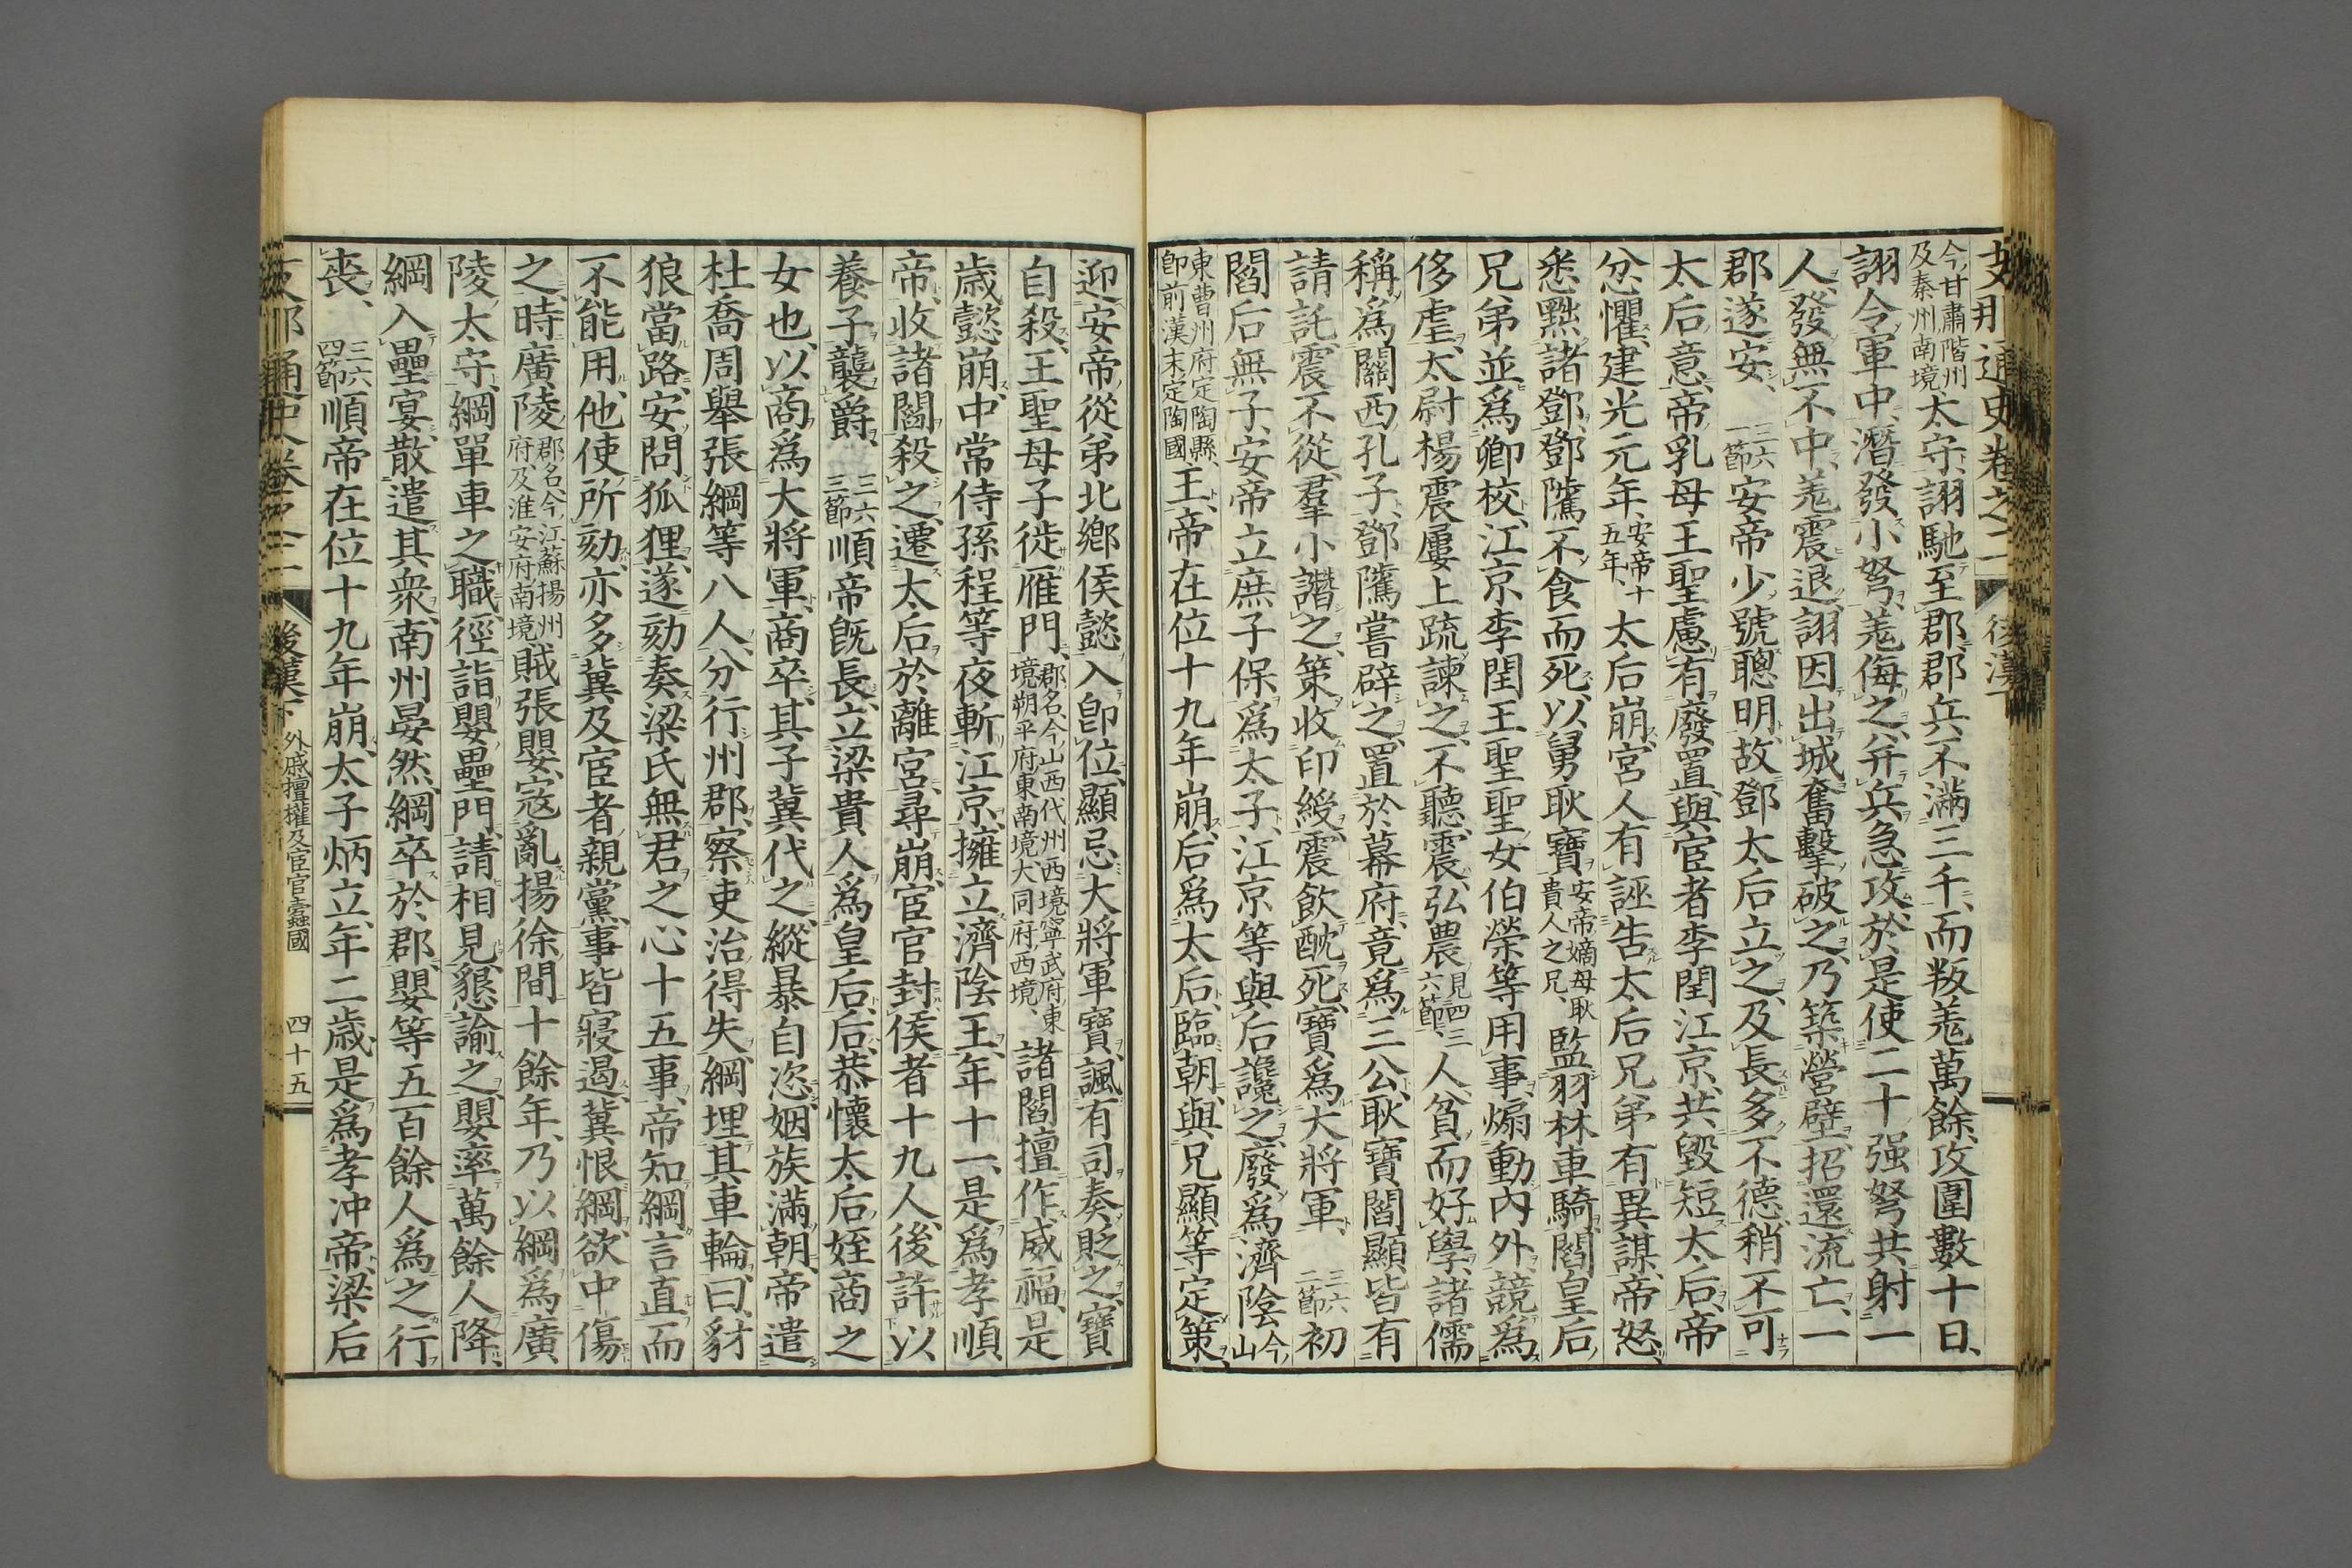 支那通史卷之二 後漢下
今甘肅階州及秦州南境太守、詡馳至郡、郡兵不滿三千、而叛羌萬餘、攻圍數十日、
詡令軍中、潛發小弩、羌侮之、幷兵急攻、於是使二十强弩共射一
人、發無不中、羌震退、詡因出城奮擊破之、乃築營壁、招還流亡、一
郡遂安、三六一節安帝少號聰明、故鄧太后立之、及長多不德、稍不可
太后意、帝乳母王聖慮有廢置、與宦者李閏江京、共毀短太后、帝
忿懼、建光元年、安帝十五年、太后崩、宮人有誣告太后兄弟有異謀、帝怒、
悉黜諸鄧、鄧隲不食而死、以舅耿寶安帝嫡母耿貴人之兄、監羽林車騎、閻皇后
兄弟並爲卿校、江京李閏王聖聖女伯榮等用事、煽動內外、競爲
侈虐、太尉楊震屢上疏諫之、不聽、震弘農見四三六節、人、貧而好學、諸儒
稱爲關西孔子、鄧隲嘗辟之、置於幕府、竟爲三公、耿寶閻顯、皆有
請託、震不從、羣小譖之、策收印綬、震飮酖死、寶爲大將軍、三六二節初
閻后無子、安帝立庶子保、爲太子、江京等與后讒之、廢爲濟陰今山
東曹州府定陶縣、卽前漢末定陶國王、帝在位十九年崩、后爲太后、臨朝、與兄顯等定策、
迎安帝從弟北鄕侯懿、入卽位、顯忌大將軍寶、諷有司奏貶之、寶
自殺、王聖母子徙雁門、郡名、今山西代州西境寧武府、東境朔平府東南境大同府西境、諸閻擅作威福、是
歲懿崩、中常侍孫程等夜斬江京、擁立濟陰王、年十一、是爲孝順
帝、收諸閻殺之、遷太后於離宮、尋崩、宦官封侯者十九人、後許以
養子襲爵、三六三節順帝旣長、立梁貴人爲皇后、后、恭懷太后姪商之
女也、以商爲大將軍、商卒、其子冀代之、縱暴自恣、姻族滿朝、帝遣
杜喬周舉張綱等八人、分行州郡、察吏治得失、綱埋其車輪曰、豺
狼當路、安問狐狸、遂劾奏梁氏無君之心十五事、帝知綱言直、而
不能用、他使所劾、亦多冀及宦者親黨、事皆寢遏、冀恨綱、欲中傷
之、時廣陵郡名、今江蘇揚州府及淮安府南境賊張嬰、寇亂揚徐間十餘年、乃以綱爲廣
陵太守、綱單車之職、徑詣嬰壘門、請相見、懇諭之、嬰率萬餘人降、
綱入壘宴、散遣其衆、南州晏然、綱卒於郡、嬰等五百餘人爲之行
喪、三六四節順帝在位十九年崩、太子炳立、年二歲、是爲孝冲帝、梁后
支那通史卷之二 後漢下 外戚擅權及宦官蠹國 四十五